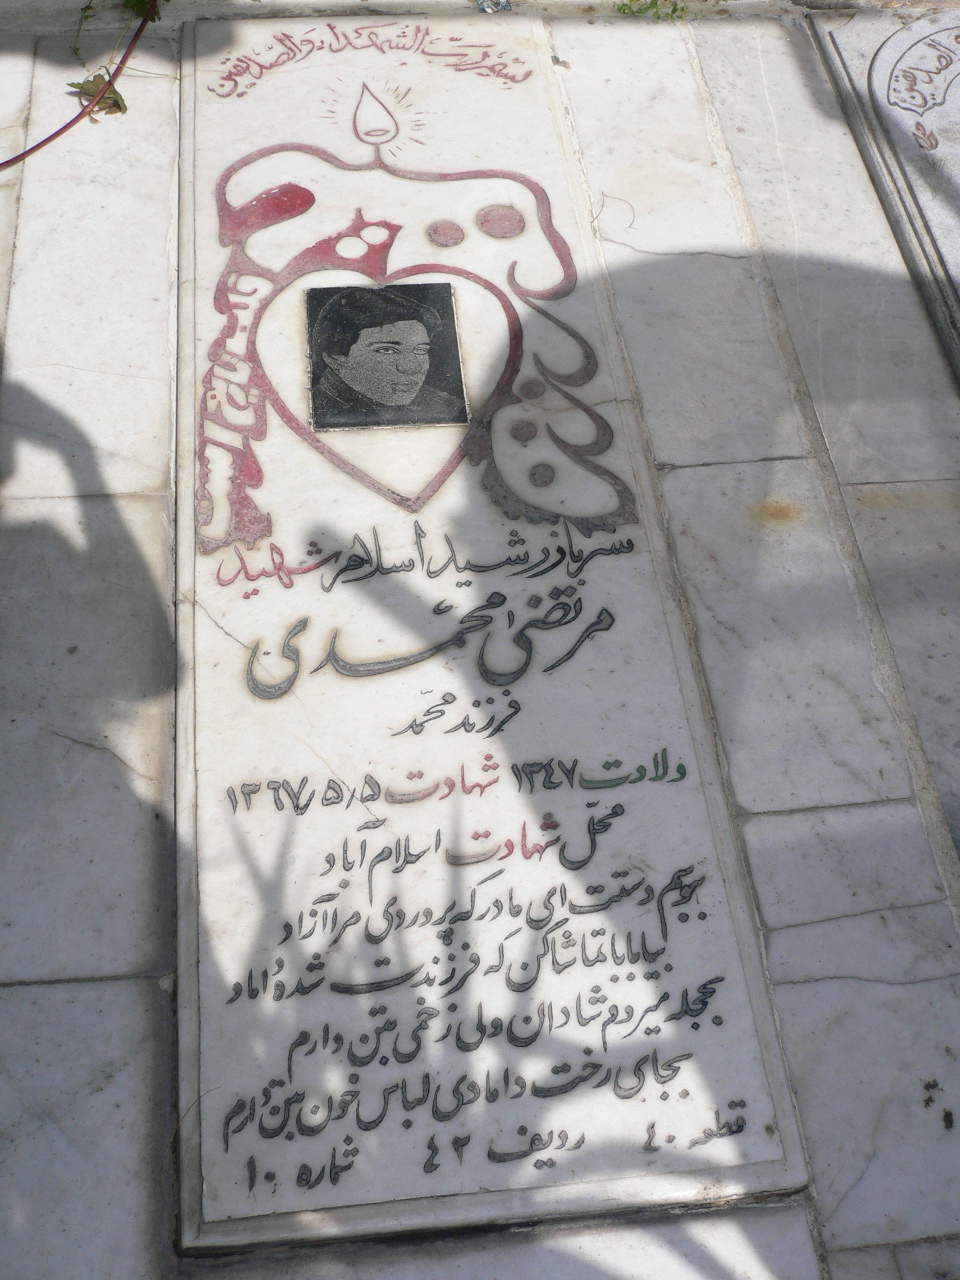 بسم رب الشهداء و الصدیقین
قلب تاریخ است
سرباز رشید اسلام شهید
مرتضی محمدی
فرزند محمد
ولادت ۱۳۴۷ شهادت ۱۳۶۷/۵/۵
محل شهادت اسلام آباد
ببوسم دستت ای مادر که پروردی مرا آزاد
بیا بابا تماشا کن که فرزندت شده داماد
بحجله میروم شادان ولی زخمی بتن دارم
بجای رخت دامادی لباس خون بتن دارم
قطعه ۴۰ ردیف ۴۲ شماره ۱۰
الصدیقین